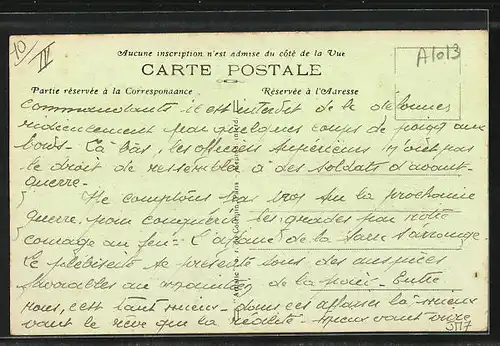 10/IV
Aucune inscription n'est admise du côté de la Vue
A1013
CARTE POSTALE
Partie réservée à la Correspondance
Réservée à l'Adresse
commandants il est interdit de le
ridiculement par quelques coups de poing aux
bals - Là bas, les officiers supérieurs n'ont pas
le droit de ressembler à des soldats d'avant-
guerre.
Ne comptons pas trop sur la prochaine
guerre, pour conquérir les grades par notre
courage au feu - L'affaire de la Sarre s'arrange.
Le plébiscite se présente sous des auspices
favorables au de la paix. Entre
nous, c'est tant mieux - dans ces affaires là mieux
vaut le rêve que la réalité - mieux vaut vivre
5117